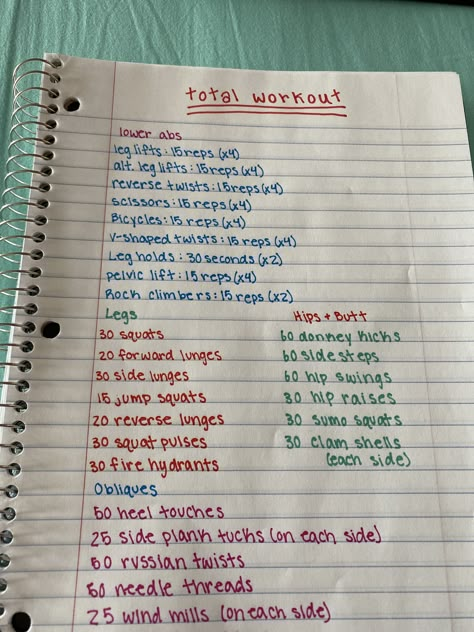 total workout
lower abs
leg lifts: 15 reps (x4)
alt. leg lifts: 15 reps (x4)
reverse twists: 15 reps (x4)
scissors: 15 reps (x4)
Bicycles: 15 reps (x4)
V-shaped twists: 15 reps (x4)
Leg holds: 30 seconds (x2)
pelvic lift: 15 reps (x4)
Rock climbers: 15 reps (x2)
Legs
30 squats
20 forward lunges
30 side lunges
15 jump squats
20 reverse lunges
30 squat pulses
30 fire hydrants
Hips + Butt
60 donkey kicks
60 side steps
60 hip swings
30 hip raises
30 sumo squats
30 clam shells
(each side)
Obliques
50 heel touches
25 side plank tucks (on each side)
50 russian twists
50 needle threads
25 wind mills (on each side)